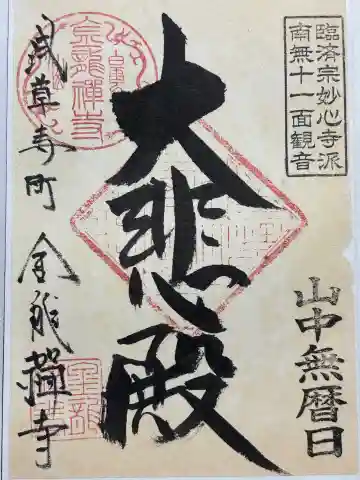 臨済宗妙心寺派
南無十一面観音
山中無暦日
大悲殿
金龍禪寺
浅草寺町 金龍禪寺